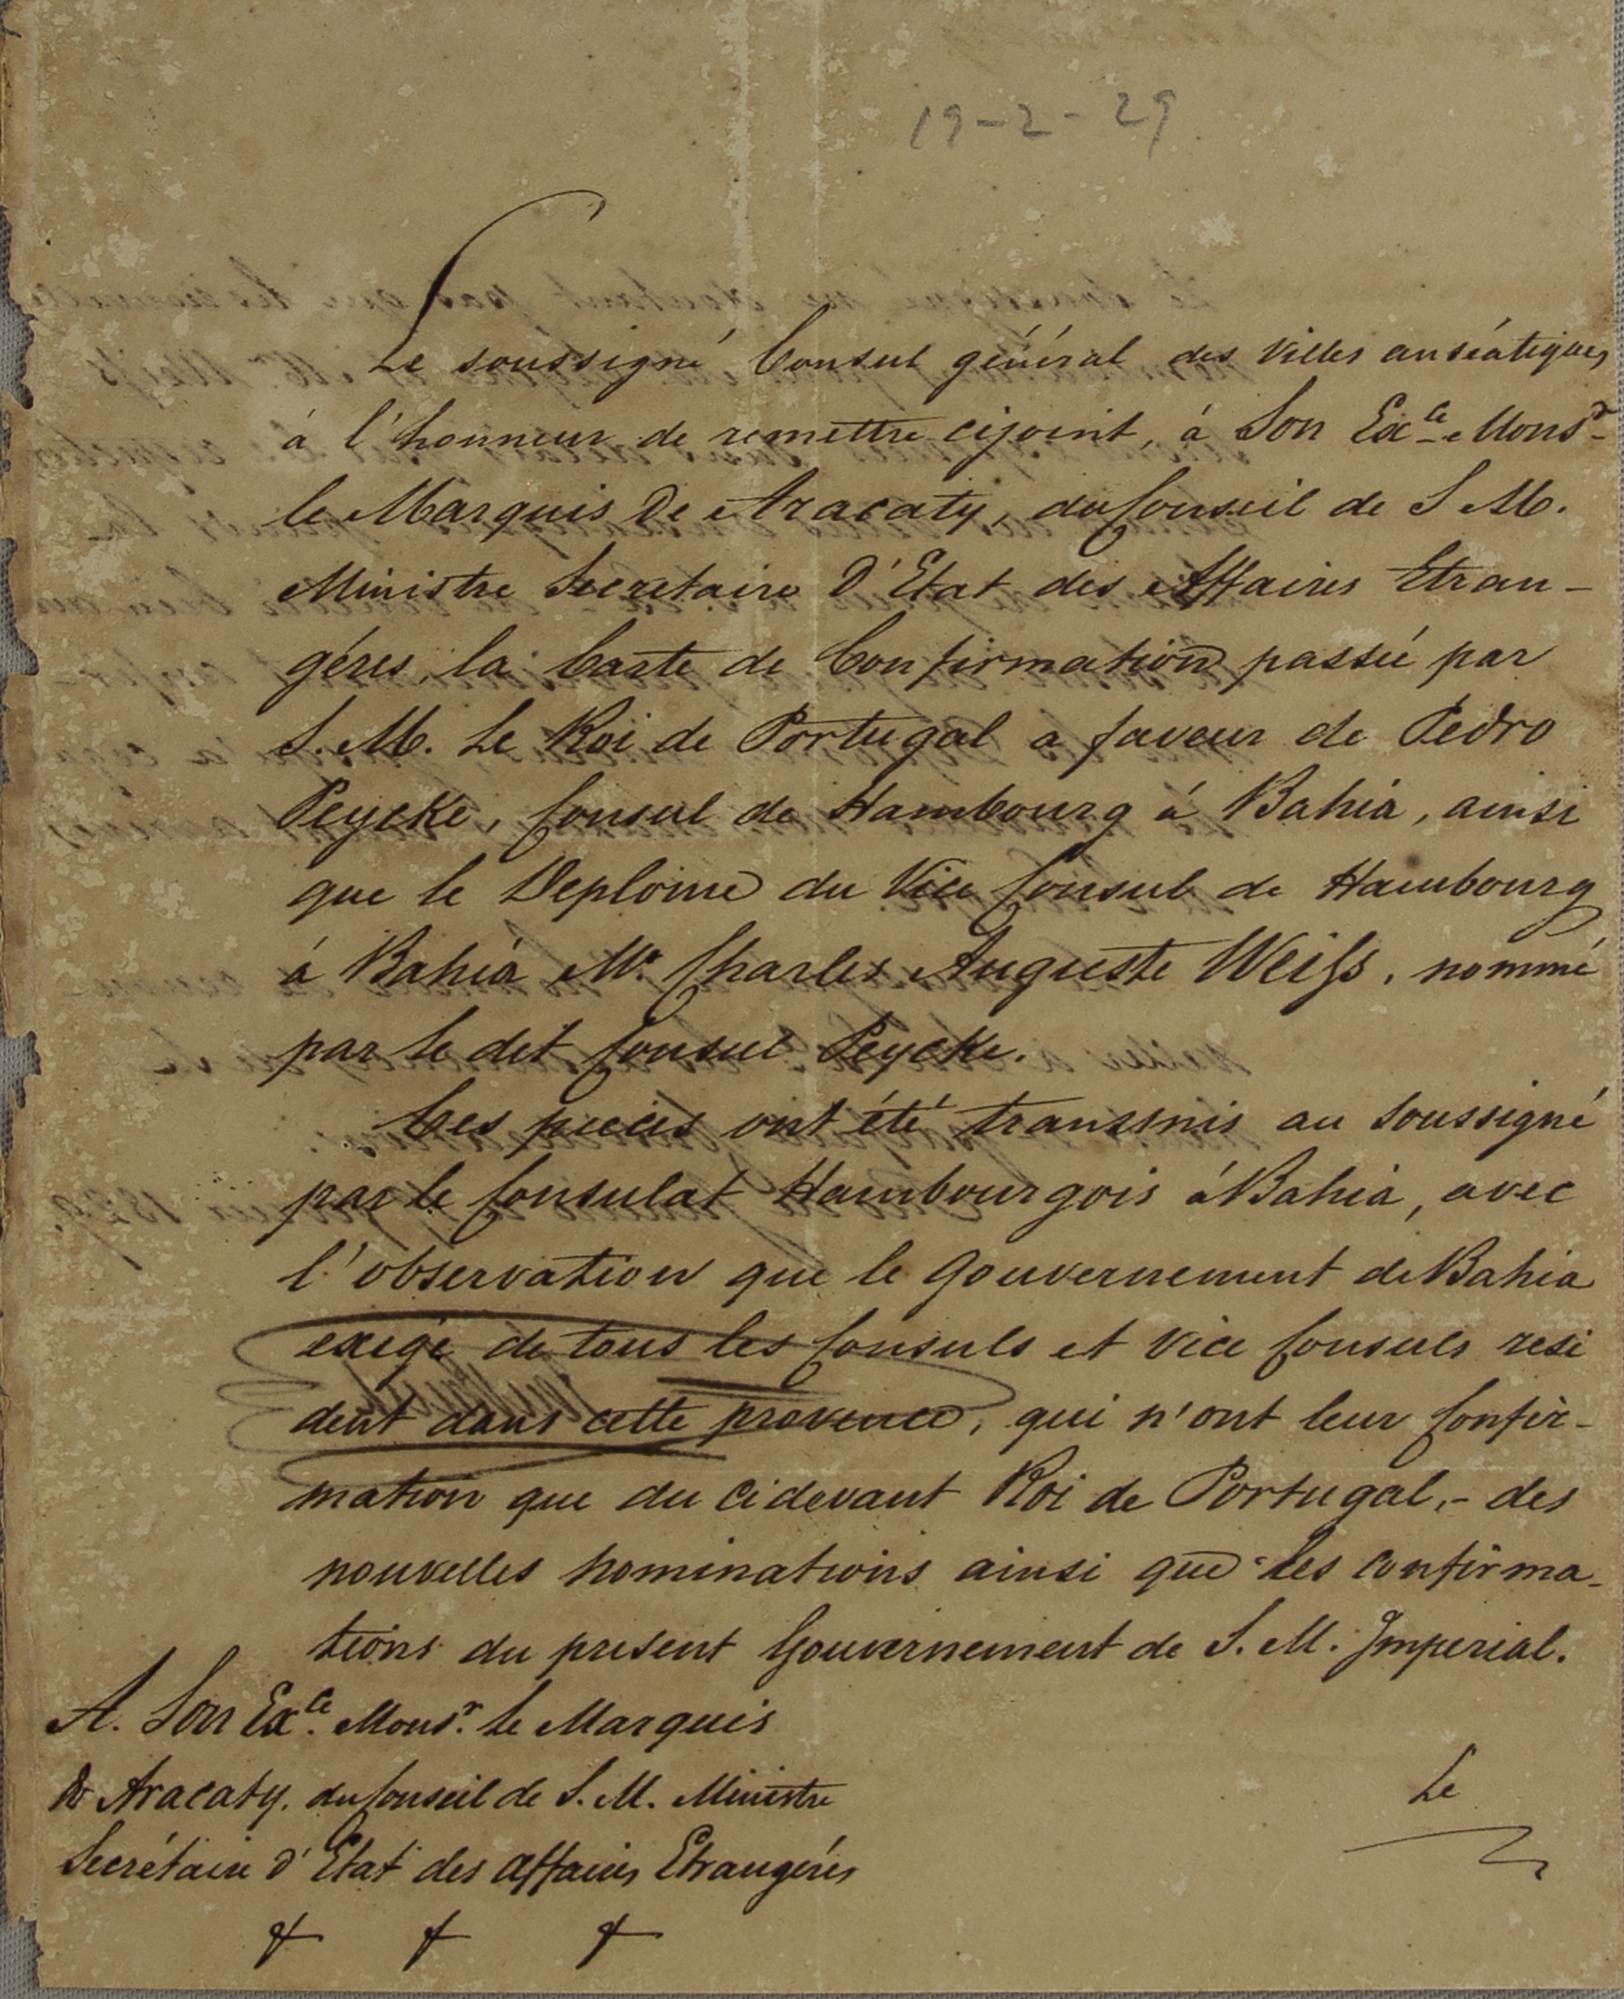 19-2-29
Le soussigné Consul général des Villes anséatiques
á l'honneur de remettre cijoint, á Son Exce Monsr
le Marquis De Aracaty, du Conseil de S M.
Ministre Secretaire D'Etat des Affaires Etran-
géres, la Carte de Confirmation passée par
S. M. Le Roi de Portugal a faveur de Pedro
Peycke, Consul de Hambourg á Bahia, ainsi
que le Deplome du Vice Consul de Hambourg
á Bahia Mr Charles Auguste Weiſs, nommé
par le dit Consul Peycke.
Ces pieces ont été transmis au soussigné
par le Consulat Hambourgois á Bahia, avec
l'observation que le Gouvernement de Bahia
exige de tous les Consuls et Vice Consuls resi
dent dans cette provence, qui n'ont leur Confir-
mation que du cidevant Roi de Portugal,- des
nouvelles nominations ainsi que les confirma-
tions du present Gouvernement de S. M. Imperial.
A. Son Exce. Monsr. le Marquis
de Aracaty. du Conseil de S. M. Ministre
Secrétaire d'Etat des affaires Etrangérés
Le